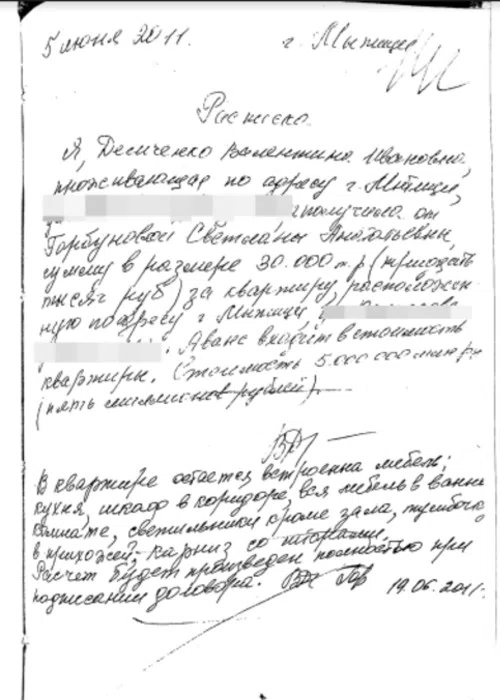 5 июня 2011. г. Мытищи
Расписка
Я, Демченко Валентина Ивановна,
проживающая по адресу г. Мытищи,
получила от
Горбуновой Светланы Анатольевны,
сумму в размере 30.000 т.р (тридцать
тысяч руб) за квартиру, расположен-
ную по адресу г. Мытищи
Аванс входит в стоимость
квартиры. Стоимость 5.000 000 млн р
(пять миллионов рублей)
В квартире остается встроенна мебель:
кухня, шкаф в коридоре, вся мебель в ванн
комнате, светильники кроме зала, тумбочка
в прихожей, карниз со шторами.
Расчет будет произведен полностью при
подписании договора. 19.06.2011г.